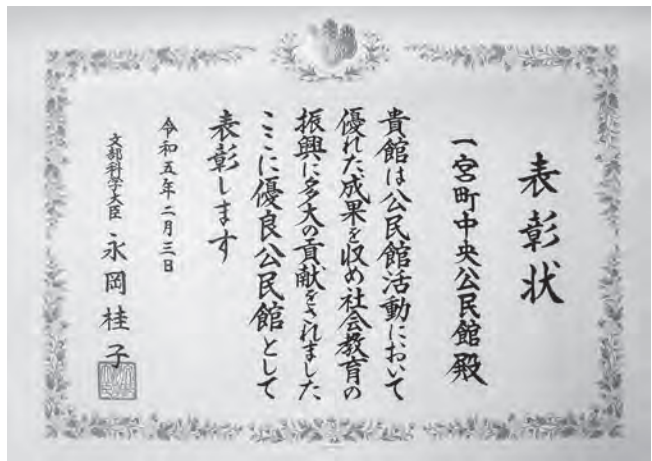 表彰状
一宮町中央公民館殿
貴館は公民館活動において
優れた成果を収め社会教育の
振興に多大の貢献をされました
ここに優良公民館として
表彰します
令和五年二月三日
文部科学大臣 永岡桂子